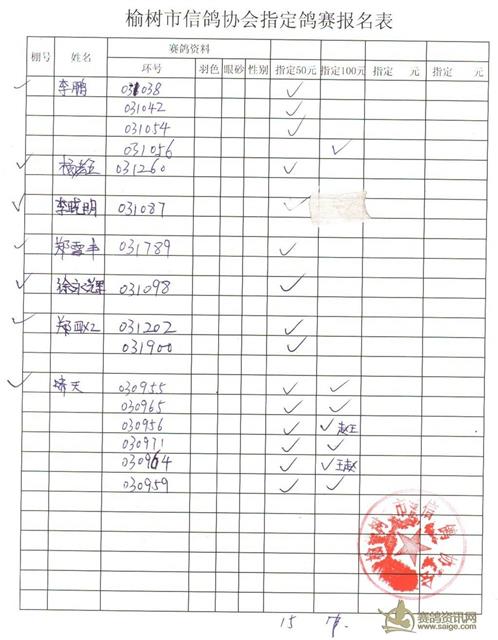 榆树市信鸽协会指定鸽赛报名表
棚号 姓名 赛鸽资料
环号 羽色 眼砂 性别 指定50元 指定100元 指定 元 指定 元
✓ 李鹏 031038 ✓
031042 ✓
031054 ✓
031056 ✓
✓ 031260 ✓
✓ 李晓明 031087 ✓
✓ 郑雪丰 031789 ✓
✓ 徐永辉 031098 ✓
✓ 031202 ✓
031900 ✓
✓ 030955 ✓ ✓
030965 ✓ ✓
030956 ✓ ✓ 赵王
030971 ✓ ✓
030964 ✓ ✓ 王赵
030959 ✓ ✓
榆树市信鸽协会
15
赛鸽资讯网
www.saige.com